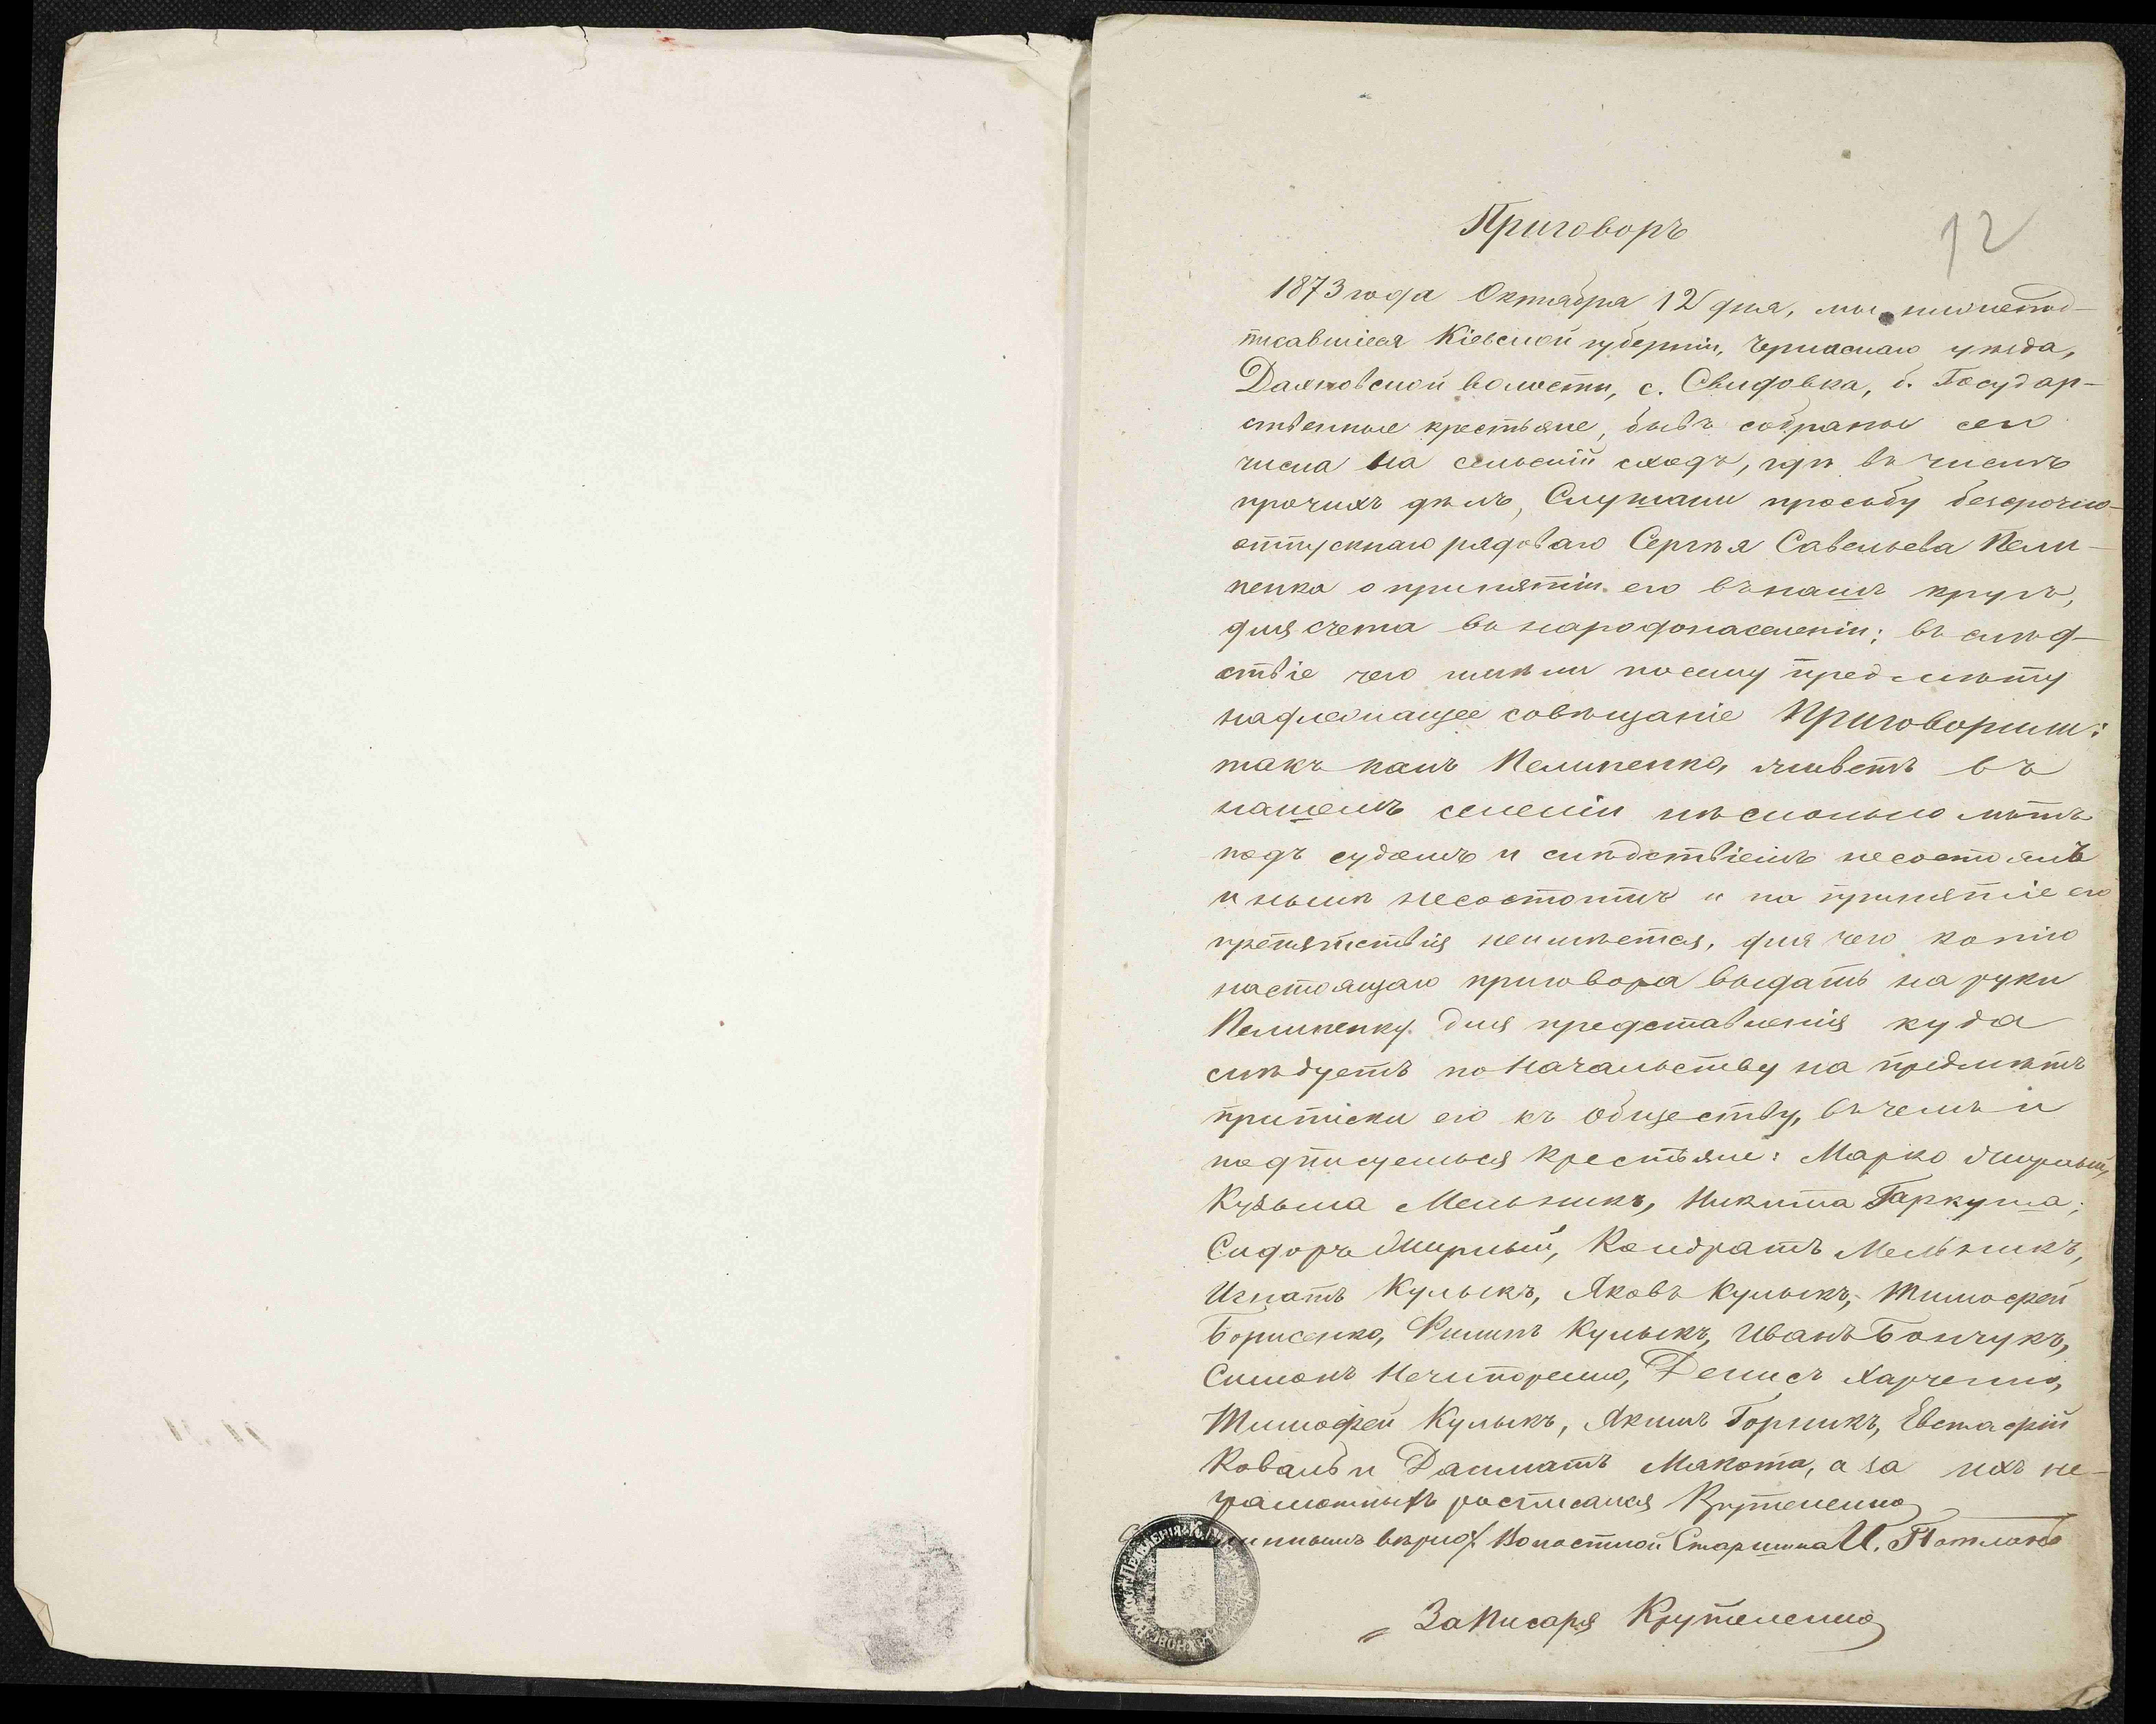 Приговоръ
12
1873 года Октября 12 дня, мы нижепод-
писавшіеся Кіевской губерніи, Черкаскаго уѣзда,
Дахновской волости, с. Свидовка, б. Государ-
ственные крестьяне, бывъ собраны сего
числа на сельскій сходъ, гдѣ въ числѣ
прочихъ дѣлъ, Слушали прозьбу безсрочно-
отпускнаго рядоваго Сергѣя Савельева Пели-
пенка о принятіи его въ нашъ кругъ,
для счета въ народонаселеніи; въ слѣд-
ствіе чего имѣли по сему предмѣту
надлежащее совѣщаніе Приговорили:
такъ какъ Пелипенко, живетъ въ
нашемъ селеніи нѣсколько лѣтъ
подъ судомъ и слѣдствіемъ несостоялъ
и нынѣ несостоитъ и на принятіе его
препятствія неимѣется, для чего копію
настоящаго приговора выдать на руки
Пелипенку для представленія куда
слѣдуетъ по Начальству на предмѣтъ
приписки его къ обществу, въ чемъ и
подписуемься Крестьяне: Марко Жирный,
Кузьма Мельникъ, Никита Гаркуша,
Сидоръ Жирный, Кондратъ Мельникъ,
Игнатъ Кулыкъ, Яковъ Кулыкъ, Тимофей
Борисенко, Филипъ Кулыкъ, Иванъ Бончукъ,
Симонъ Нечипоренко, Денисъ Харченко,
Тимофей Кулыкъ, Якимъ Горникъ, Евстафій
Коваль и Далматъ Макота, а за ихъ не-
грамотныхъ росписался Крутеленко
линнымъ вѣрно/ Волостной Старшина И.
За Писаря Крутеленко